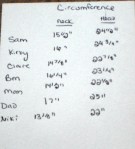 Circumference
neck head
Sam 15 1/2" 24 1/8"
Kirby 16" 
Claire 14 7/8" 22 7/8"
Ben 16 1/4" 23 1/2"
Mom 14 1/2" 22 3/4"
Dad 17" 25"
Niki 13 1/8" 22"